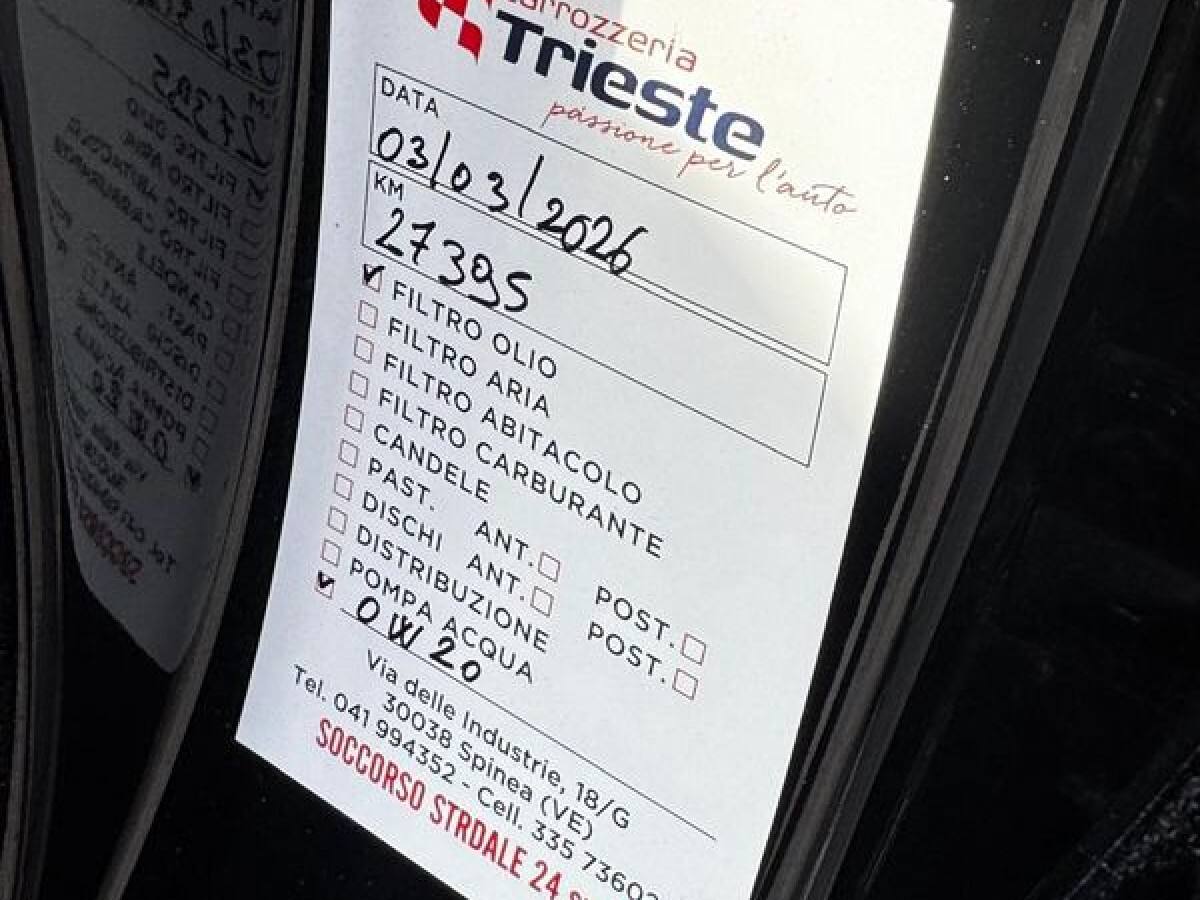 carrozzeria
Trieste
passione per l'auto
DATA
03/03/2026
KM
27395
FILTRO OLIO
FILTRO ARIA
FILTRO ABITACOLO
FILTRO CARBURANTE
CANDELE
PAST. ANT. POST.
DISCHI ANT. POST.
DISTRIBUZIONE
POMPA ACQUA
0W20
Via delle Industrie, 18/G
30038 Spinea (VE)
Tel. 041 994352 - Cell. 335 7360
SOCCORSO STRDALE 24